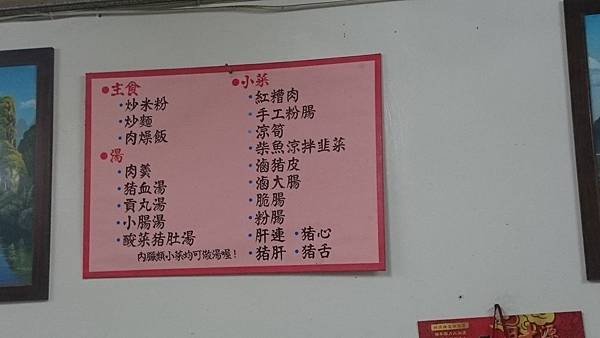 主食
炒米粉
炒麵
肉燥飯
湯
肉羹
豬血湯
貢丸湯
小腸湯
酸菜豬肚湯
內臟類小菜均可做湯喔!
小菜
紅糟肉
手工粉腸
涼筍
柴魚涼拌韭菜
滷豬皮
滷大腸
脆腸
粉腸
肝連 豬心
豬肝 豬舌